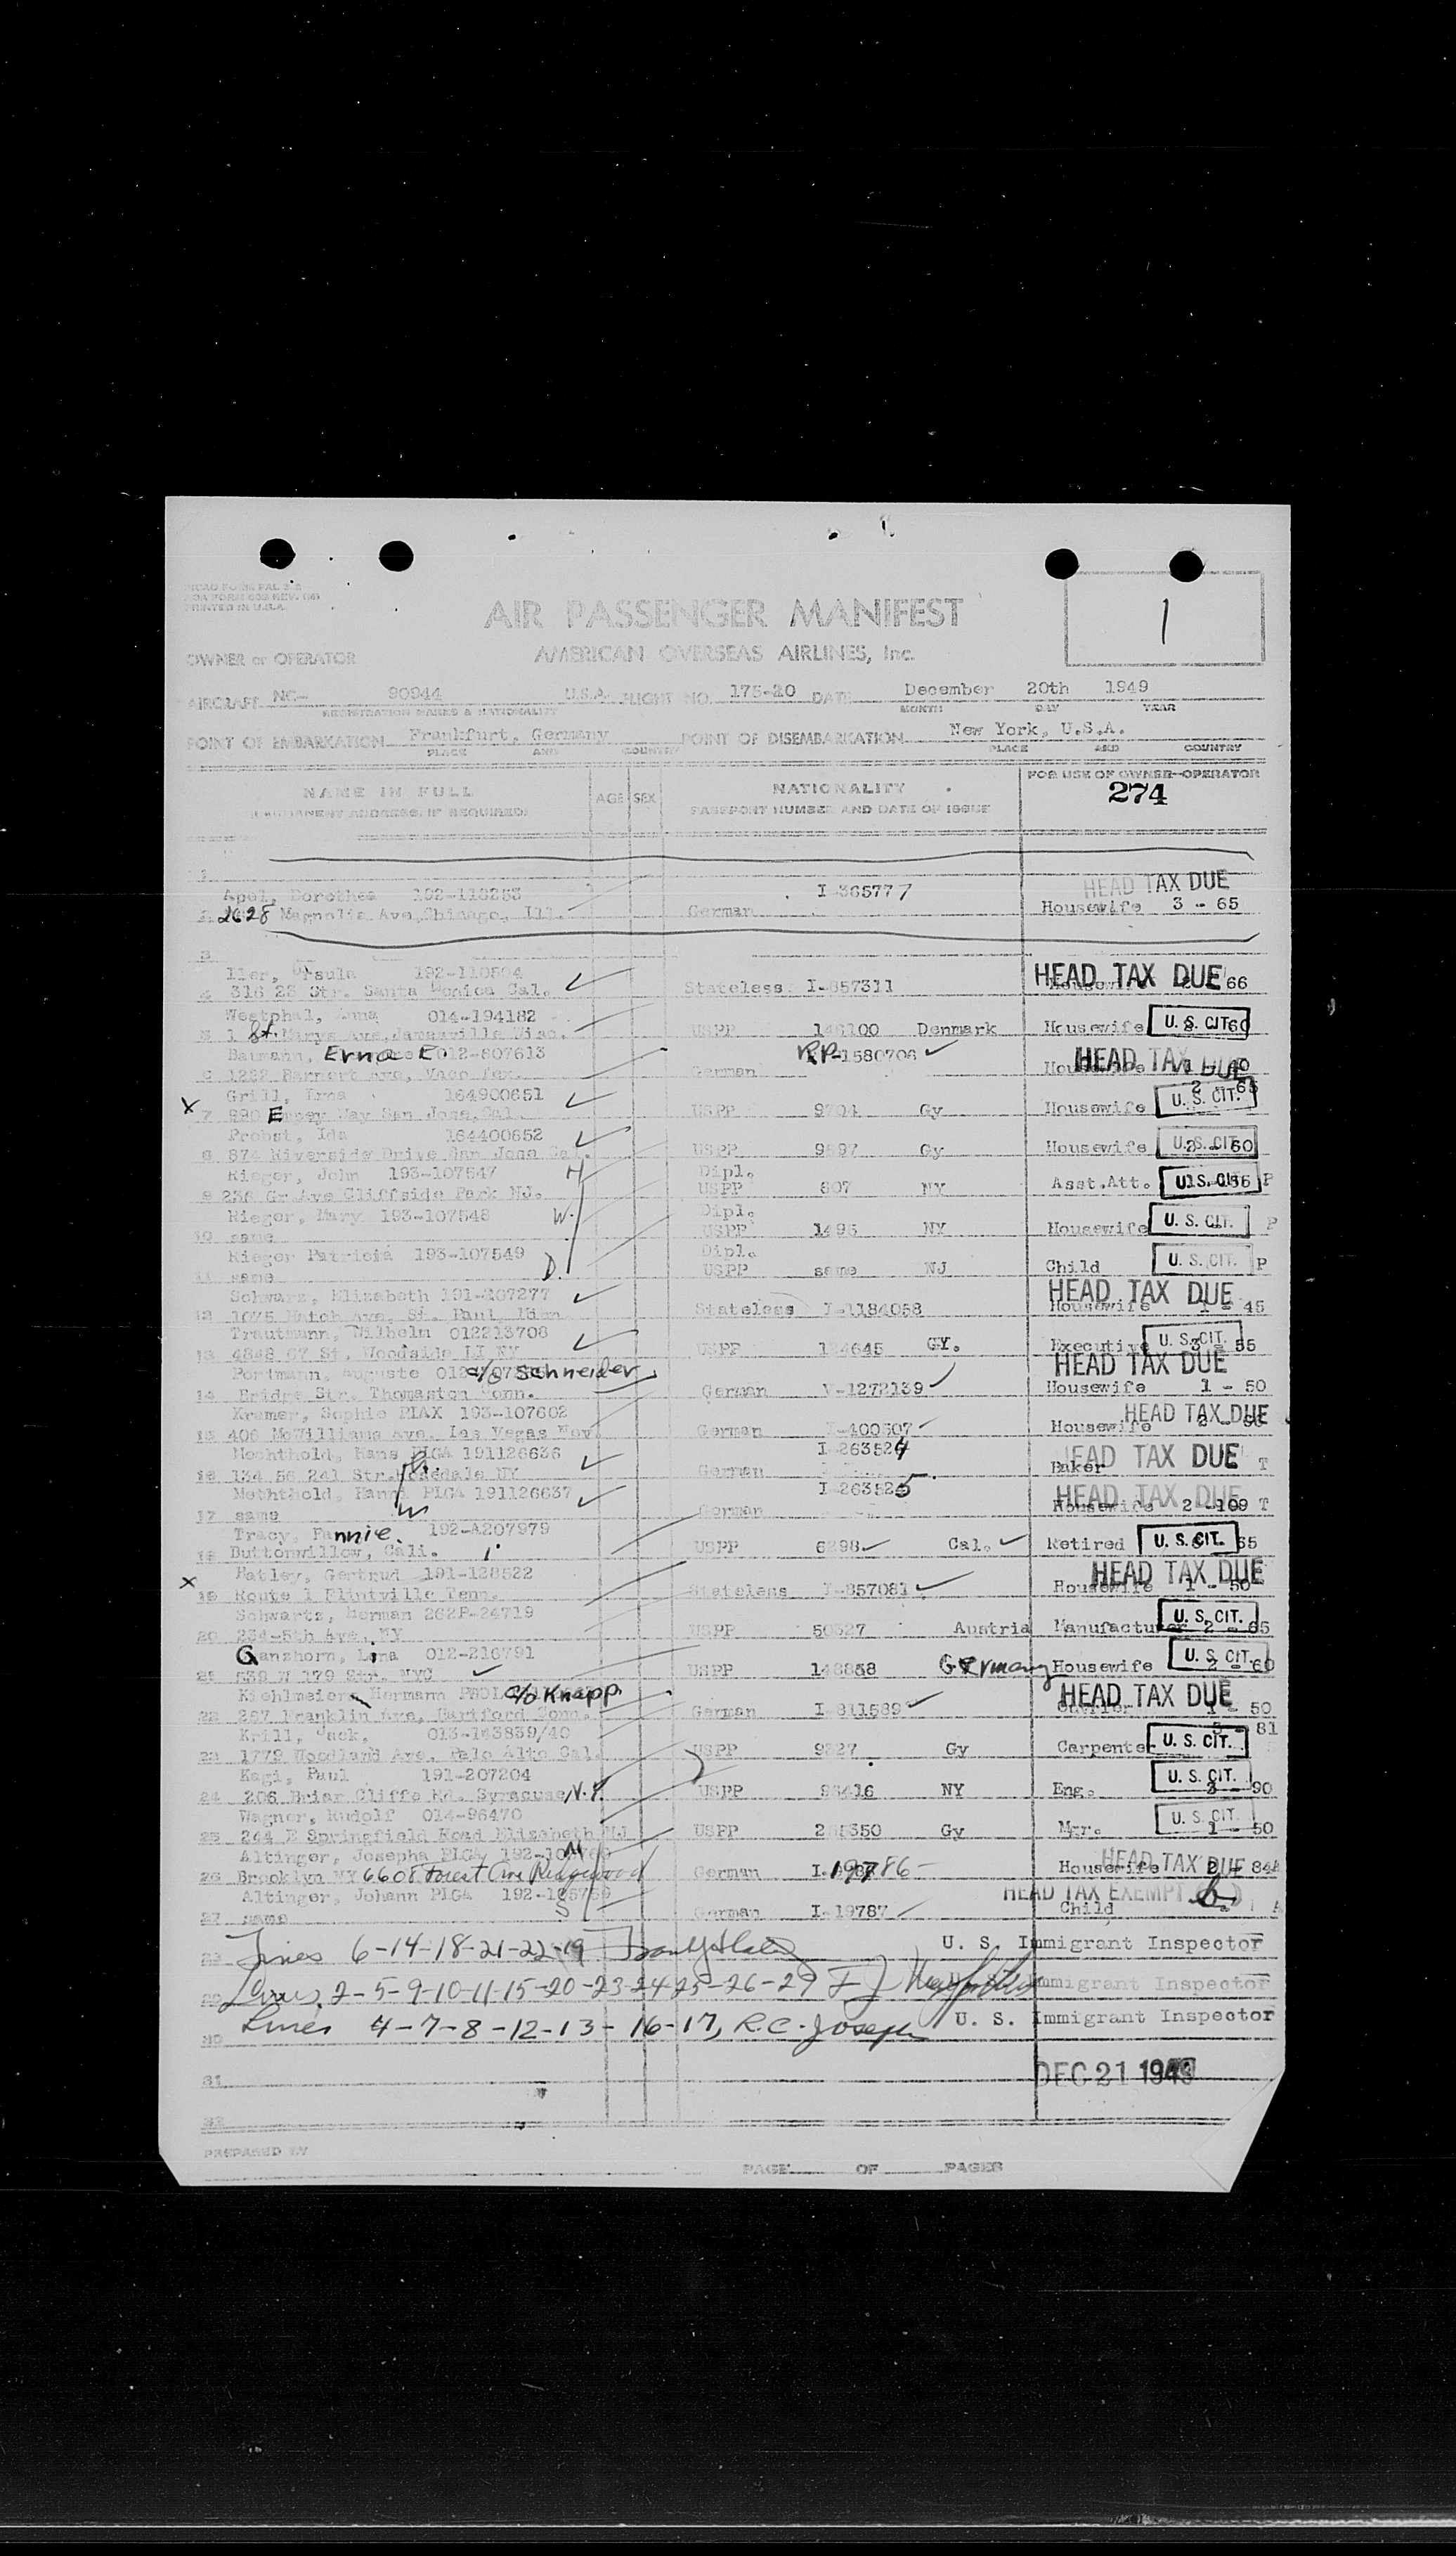 1
AIR PASSENGER MANIFEST
OWNER or OPERATOR AMERICAN OVERSEAS AIRLINES, Inc.
AIRCRAFT NC- 90944 U.S.A. FLIGHT NO. 175-20 DATE December 20th 1949
REGISTRATION MARKS & NATIONALITY MONTH DAY YEAR
POINT OF EMBARKATION Frankfurt, Germany POINT OF DISEMBARKATION New York, U.S.A.
PLACE AND COUNTRY PLACE AND COUNTRY
NAME IN FULL AGE SEX NATIONALITY FOR USE OF OWNER-OPERATOR
(PERMANENT ADDRESS, IF REQUIRED) PASSPORT NUMBER AND DATE OF ISSUE 274
1
Apel, Dorothea 192-118253 I-365777 HEAD TAX DUE
2 2628 Magnolia Ave, Chicago, Ill. German Housewife 3 - 65
3
Iler, Ursula 192-110594 HEAD TAX DUE
4 316 23 Str. Santa Monica Cal. Stateless I-857311 66
Westphal, 014-194182
5 1 St. Marys Ave, Janesville Wisc. USPP 100 Denmark Housewife U. S. CIT. 60
Baumann, Erna E 012-807613 RP-1580706 HEAD TAX DUE
6 1282 Barnert Ave, Waco Tex. German
Grill, Erna 164900651 2 - 65
X 7 890 E Way San Jose, Cal. USPP Gy Housewife U. S. CIT.
Probst, Ida 164400652
8 874 Riverside Drive San Jose Cal. USPP 9897 Gy Housewife U. S. CIT. 2 - 60
Rieger, John 193-107547 H Dipl.
9 236 Gr Ave Cliffside Park NJ. USPP 807 NY Asst.Att. U. S. CIT. P
Rieger, Mary 193-107548 W. Dipl.
10 same USPP 1495 NY Housewife U. S. CIT. P
Rieger Patricia 193-107549 D. Dipl.
11 same USPP same NJ Child U. S. CIT. P
Schwarz, Elizabeth 191-207277 HEAD TAX DUE
12 1075 Hatch Ave, St. Paul, Stateless I-1184058 Housewife 1 - 45
Trautmann, Wilhelm 012213708
13 4848 67 St. Woodside LI NY USPP 124645 GY. Executive U. S. CIT. 3 - 55
Portmann, Auguste c/o Schneider HEAD TAX DUE
14 Bridge Str. Thomaston Conn. German V-1272139 Housewife 1 - 50
Kramer, Sophie PIAX 193-107602 HEAD TAX DUE
15 406 McWilliams Ave. Las Vegas Nev. German I-400507 Housewife
Mechthold, Hans PIGA 191126636 I-263524
16 134 56 241 Str. Rosedale NY German Baker HEAD TAX DUE T
Mechthold, Hanni PIGA 191126637 I-263525 HEAD TAX DUE
17 same W German Housewife 2 -109 T
Tracy, Fannie. 192-A207979
18 Buttonwillow, Cali. USPP 6298 Cal. Retired U. S. CIT. 65
Hatley, Gertrud 191-128522 HEAD TAX DUE
X 19 Route 1 Flintville Tenn. Stateless I-857081 Housewife 1 - 50
Schwartz, Herman 262F-24719 U. S. CIT.
20 234-5th Ave, NY USPP 50327 Austria Manufacturer 2 - 65
Ganzhorn, Lina 012-216791
21 539 W 179 Str. NYC USPP 148858 Germany Housewife U. S. CIT. 2 - 60
Kiehlmeier, Hermann c/o Knapp. HEAD TAX DUE
22 257 Franklin Ave, Hartford Conn. German I-811589 1 - 50
Krill, Jack, 013-143839/40 3 - 81
23 1779 Woodland Ave. Palo Alto Cal. USPP 9327 Gy Carpenter U. S. CIT.
Kagi, Paul 191-207204
24 206 Briar Cliffe Rd. Syracuse, N.Y. USPP 96416 NY Eng. U. S. CIT. 3 - 90
Wagner, Rudolf 014-96470
25 244 E Springfield Road Elizabeth NJ USPP Gy Mgr. U. S. CIT. 1 - 50
Altinger, Josepha PIGA M HEAD TAX DUE
26 Brooklyn NY 6608 Forest Ave Ridgewood German I-19786 Housewife 2 - 84A
Altinger, Johann PIGA S HEAD TAX EXEMPT
27 same German I-19787 Child
28 Lines 6-14-18-21-22-19 U. S. Immigrant Inspector
29 Lines 2-5-9-10-11-15-20-23-24-25-26-29 F J U. S. Immigrant Inspector
30 Lines 4-7-8-12-13-16-17, R.C. Joseph U. S. Immigrant Inspector
31 DEC 21 1949
32
PREPARED BY
PAGE OF PAGES